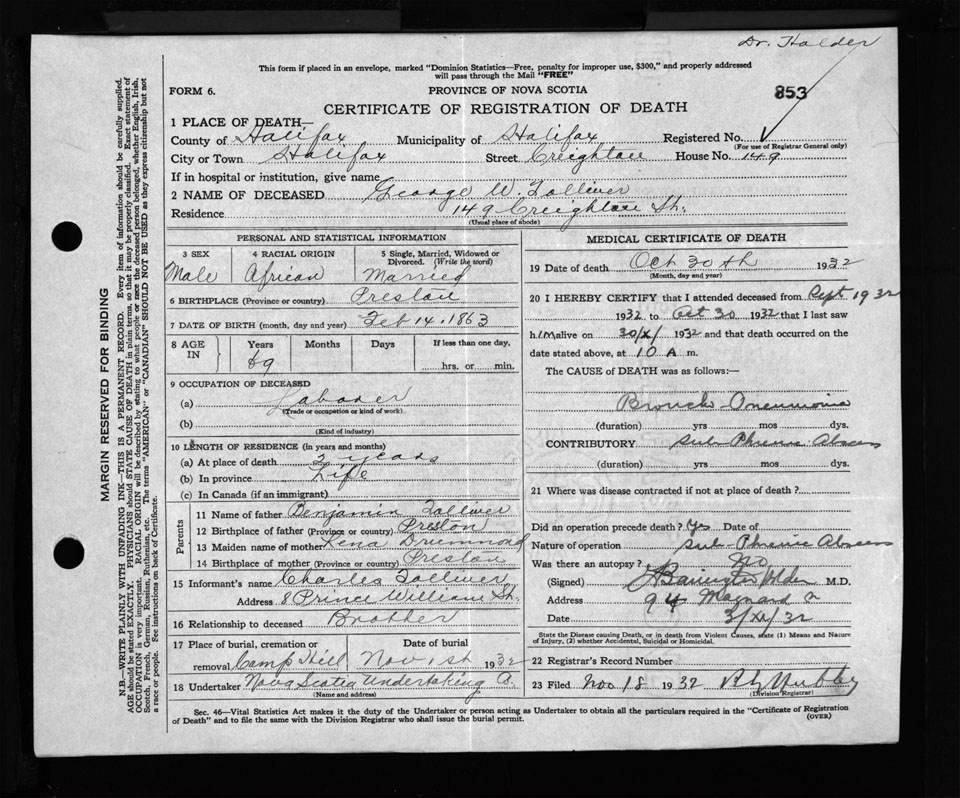 Dr. Holder
This form if placed in an envelope, marked "Dominion Statistics—Free, penalty for improper use, $300," and properly addressed
will pass through the Mail "FREE"
FORM 6.
PROVINCE OF NOVA SCOTIA
853
CERTIFICATE OF REGISTRATION OF DEATH
1 PLACE OF DEATH—
County of Halifax Municipality of Halifax Registered No.
(For use of Registrar General only)
City or Town Halifax Street Creighton House No. 149
If in hospital or institution, give name
2 NAME OF DECEASED George W. Tolliver
Residence 149 Creighton St.
(Usual place of abode)
PERSONAL AND STATISTICAL INFORMATION
3 SEX 4 RACIAL ORIGIN 5 Single, Married, Widowed or
Divorced. (Write the word)
Male African Married
6 BIRTHPLACE (Province or country) Preston
7 DATE OF BIRTH (month, day and year) Feb 14. 1863
8 AGE IN Years Months Days If less than one day.
69 hrs. or min.
9 OCCUPATION OF DECEASED
(a) Laborer
(Trade or occupation or kind of work).
(b)
(Kind of industry)
10 LENGTH OF RESIDENCE (in years and months)
(a) At place of death years
(b) In province Life
(c) In Canada (if an immigrant)
Parents
11 Name of father Benjamin Tolliver
12 Birthplace of father (Province or country) Preston
13 Maiden name of mother Lena Drummond
14 Birthplace of mother (Province or country) Preston
15 Informant's name Charles Tolliver
Address 8 Prince William St.
16 Relationship to deceased Brother
17 Place of burial, cremation or Date of burial
removal Camp Hill Nov 1st 1932
18 Undertaker Nova Scotia Undertaking Co.
(Name and address)
MEDICAL CERTIFICATE OF DEATH
19 Date of death Oct 30th 1932
(Month, day and year)
20 I HEREBY CERTIFY that I attended deceased from Sept 1932
1932 to Oct 30 1932 that I last saw
him alive on 30/X/ 1932 and that death occurred on the
date stated above, at 10 A m.
The CAUSE of DEATH was as follows:—
Broncho Pneumonia
(duration) yrs mos dys.
CONTRIBUTORY Sub Phrenic Abscess
(duration) yrs mos dys.
21 Where was disease contracted if not at place of death?
Did an operation precede death? Yes Date of
Nature of operation Sub Phrenic Abscess
Was there an autopsy? No
(Signed) Barrington Holder M.D.
Address 94 Maynard
Date
State the Disease causing Death, or in death from Violent Causes, state (1) Means and Nature
of Injury, (2) whether Accidental, Suicidal or Homicidal.
22 Registrar's Record Number
23 Filed Nov 18 1932
(Division Registrar)
Sec. 46—Vital Statistics Act makes it the duty of the Undertaker or person acting as Undertaker to obtain all the particulars required in the "Certificate of Registration
of Death" and to file the same with the Division Registrar who shall issue the burial permit.
(OVER)
MARGIN RESERVED FOR BINDING
N.B.—WRITE PLAINLY WITH UNFADING INK—THIS IS A PERMANENT RECORD. Every item of information should be carefully supplied.
AGE should be stated EXACTLY. PHYSICIANS should STATE CAUSE OF DEATH in plain terms, so that it may be properly classified. Exact statement of
OCCUPATION is very important. RACIAL ORIGIN will be described by stating to what people or race the deceased person belonged, whether English, Irish,
Scotch, French, German, Russian, Ruthenian, etc. The terms "AMERICAN" or "CANADIAN" SHOULD NOT BE USED as they express citizenship but not
a race or people. See instructions on back of Certificate.